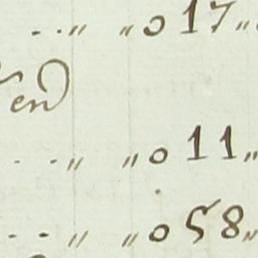 . . „ „ 0 17 „
en
. . „ „ 0 11 „
. . „ „ 0 58 „